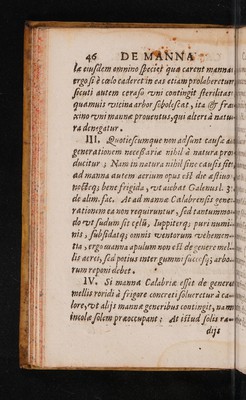 46 DE MANNA
læ eiusdem omnino speciei quæ carent manna:
ergo si è cœlo caderet in eas etiam prolaberetur
sicuti autem ceraso vni contingit sterilitas
quamuis vicina arbor sobolescat, ita & fra-
xino vni mannæ prouentus, qui alteri à natu-
ra denegatur.
III. Quotiescumque non adsunt causæ ad
generationem necessariæ nihil à natura pro-
ducitur; Nam in natura nihil sine causis fit,
ad manna autem aerium opus est die æstiuo
noctéq; bene frigida, vt aiebat Galenus l. 3.
de alim. fac. At ad manna Calabrensis gene-
rationem ea non requiruntur, sed tantummo-
do vt sudum sit cęlū, Iuppiterq; puri numi-
nis, subsidatq; omnis ventorum vehemen-
tia, ergo manna apulum non est de genere mel-
lis aerei, sed potius inter gummi succosq; arbo-
rum reponi debet.
IV. Si manna Calabriæ esset de genere
mellis roridi à frigore concreti solueretur à ca-
lore, vt alijs mannæ generibus contingit, nam
incolæ solem præoccupant; At istud solis ra-
dijs